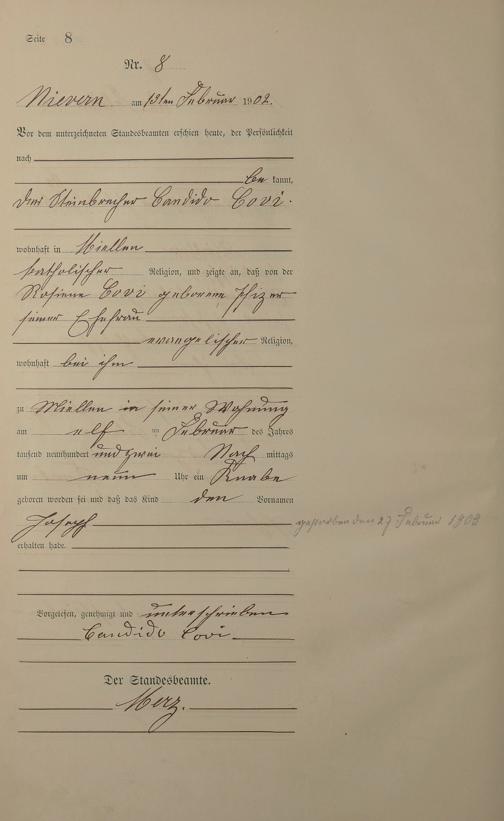 Seite 8
Nr. 8
Nievern am 13ten Februar 1902.
Vor dem unterzeichneten Standesbeamten erschien heute, der Persönlichkeit
nach
be kannt,
der Steinbrecher Candido Covi.
wohnhaft in Miellen
katholischer Religion, und zeigte an, daß von der
Rosine Covi geborene
seiner Ehefrau
evangelischer Religion,
wohnhaft bei ihm
zu Miellen in seiner Wohnung
am elf ten Februar des Jahres
tausend neunhundert und zwei Nach mittags
um neun Uhr ein Knabe
geboren worden sei und daß das Kind den Vornamen
Joseph
gestorben den 27 Februar
erhalten habe.
Vorgelesen, genehmigt und unterschrieben
Candido Covi
Der Standesbeamte.
Merz.